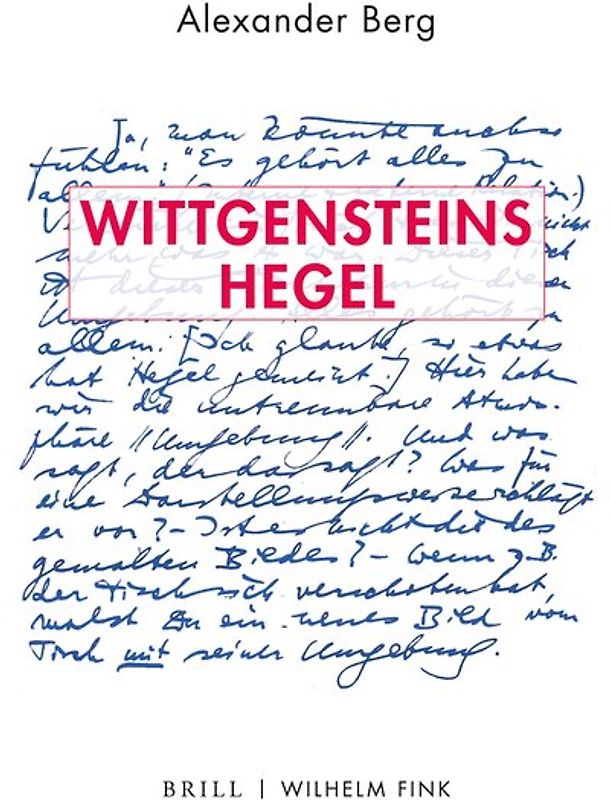 Alexander Berg
Ja, man könnte auch so
fühlen: "Es gehört alles zu
allem"
WITTGENSTEINS
HEGEL
allem. [Ich glaube, so etwas
hat Hegel gemeint.] Hier haben
wir die untrennbare Atmos-
phäre //Umgebung//. Und was
sagt, der das sagt? Was für
eine Darstellungsweise schlägt
er vor? – Ist es nicht die des
gemalten Bildes? – Wenn z.B.
der Tisch sich verschoben hat,
malst Du ein neues Bild vom
Tisch mit seiner Umgebung.
BRILL | WILHELM FINK